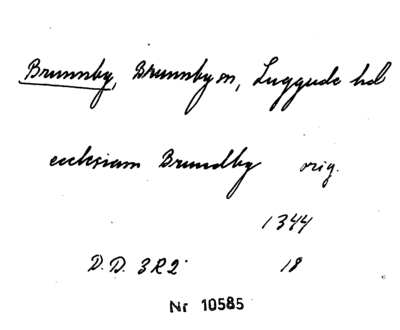 Brunnby, Brunnby sn, Luggude hd
ecclesiam Brundby orig.
1344
D.D. 3R2 18
Nr 10585